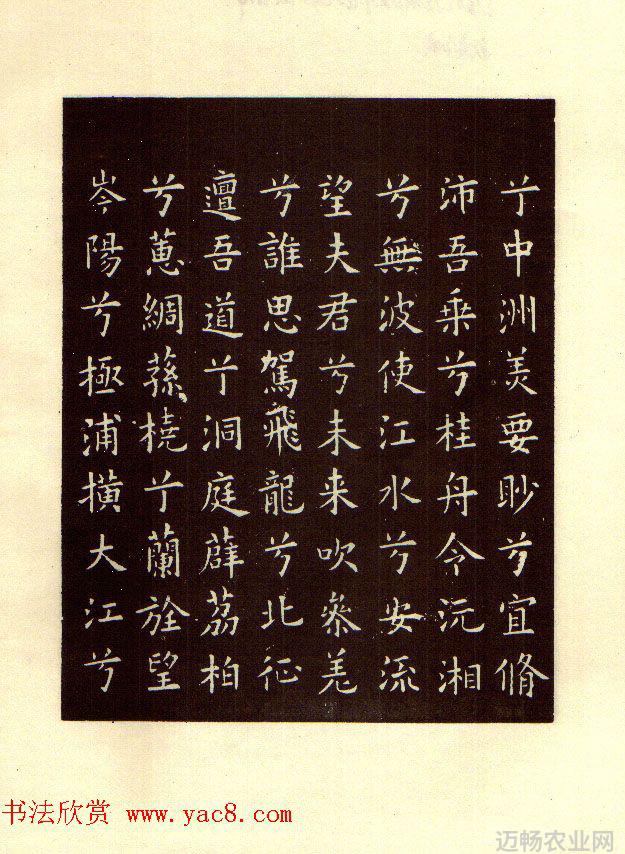 兮中洲美要眇兮宜脩
沛吾乗兮桂舟令沅湘
兮無波使江水兮安流
望夫君兮未来吹叅羌
兮誰思駕飛龍兮北征
邅吾道兮洞庭薜荔柏
兮蕙綢蓀橈兮蘭旌望
岑陽兮極浦横大江兮
书法欣赏 www.yac8.com
迈畅农业网